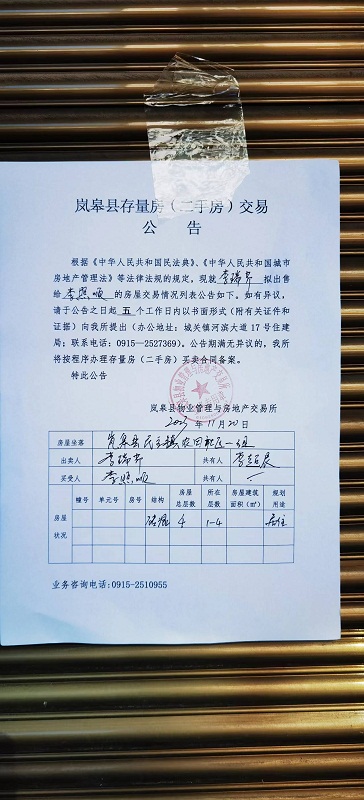 岚皋县存量房（二手房）交易
公 告
根据《中华人民共和国民法典》、《中华人民共和国城市
房地产管理法》等法律法规的规定，现就 李瑞芹 拟出售
给 李照顺 的房屋交易情况列表公告如下。如有异议，
请于公告之日起 五 个工作日内以书面形式（附有关证件和
证据）向我所提出（办公地址：城关镇河滨大道17号住建
局；联系电话：0915—2527369）。公告期满无异议的，我所
将按程序办理存量房（二手房）买卖合同备案。
特此公告
岚皋县物业管理与房地产交易所
2023年11月20日
房屋坐落 岚皋县民主镇农田社区一组
出卖人 李瑞芹 共有人
买受人 李照顺 共有人 /
房屋状况 幢号 单元号 房号 结构 房屋总层数 所在层数 房屋建筑面积（㎡） 规划用途
4 1-4 居住
业务咨询电话:0915-2510955